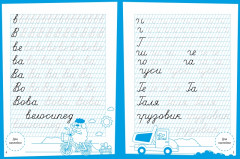 в
В
ве
ва
Ва
Во
Вова
велосипед
г
г
Г
ги ге
го га
гуси
Ге Га
Галя
грузовик